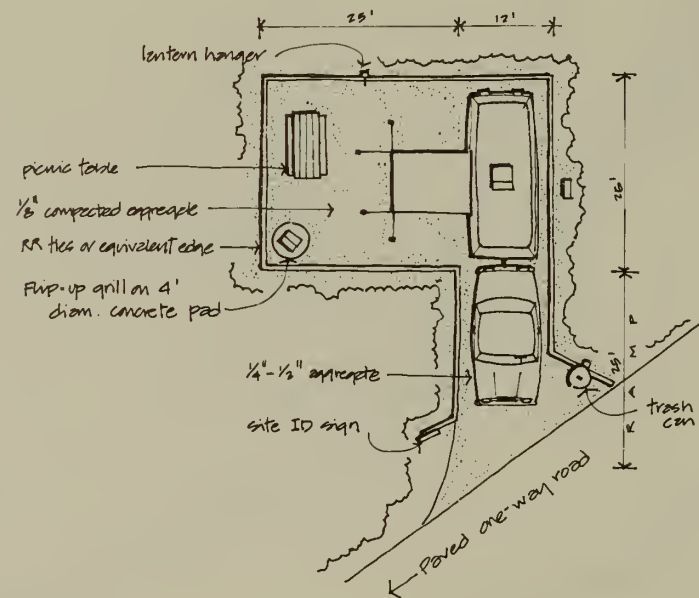 25'
12'
lantern hanger
picnic table
1/8" compacted aggregate
RR ties or equivalent edge
Flip-up grill on 4'
diam. concrete pad
26'
1/4"-1/2" aggregate
site ID sign
25'
RAMP
trash
can
Paved one-way road